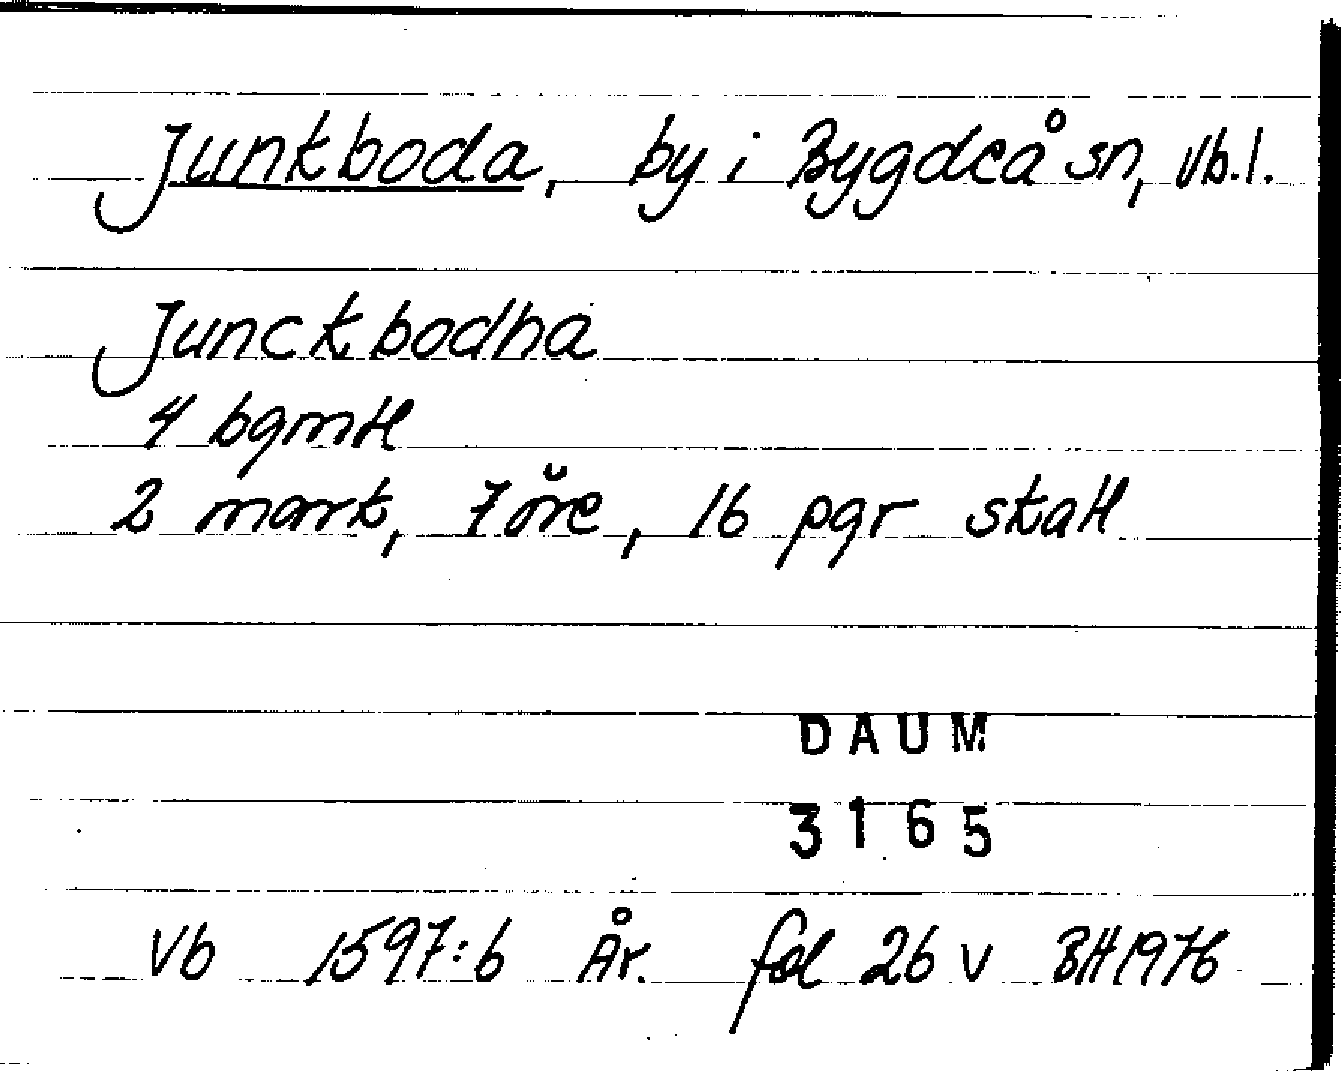 Junkboda, by i Bygdeå sn, Vb.l.
Junckbodha
4 bgmtl
2 mark, 7 öre, 16 pgr skatt
DAUM
3165
Vb 1597:6 År. fol 26 v BH 1976